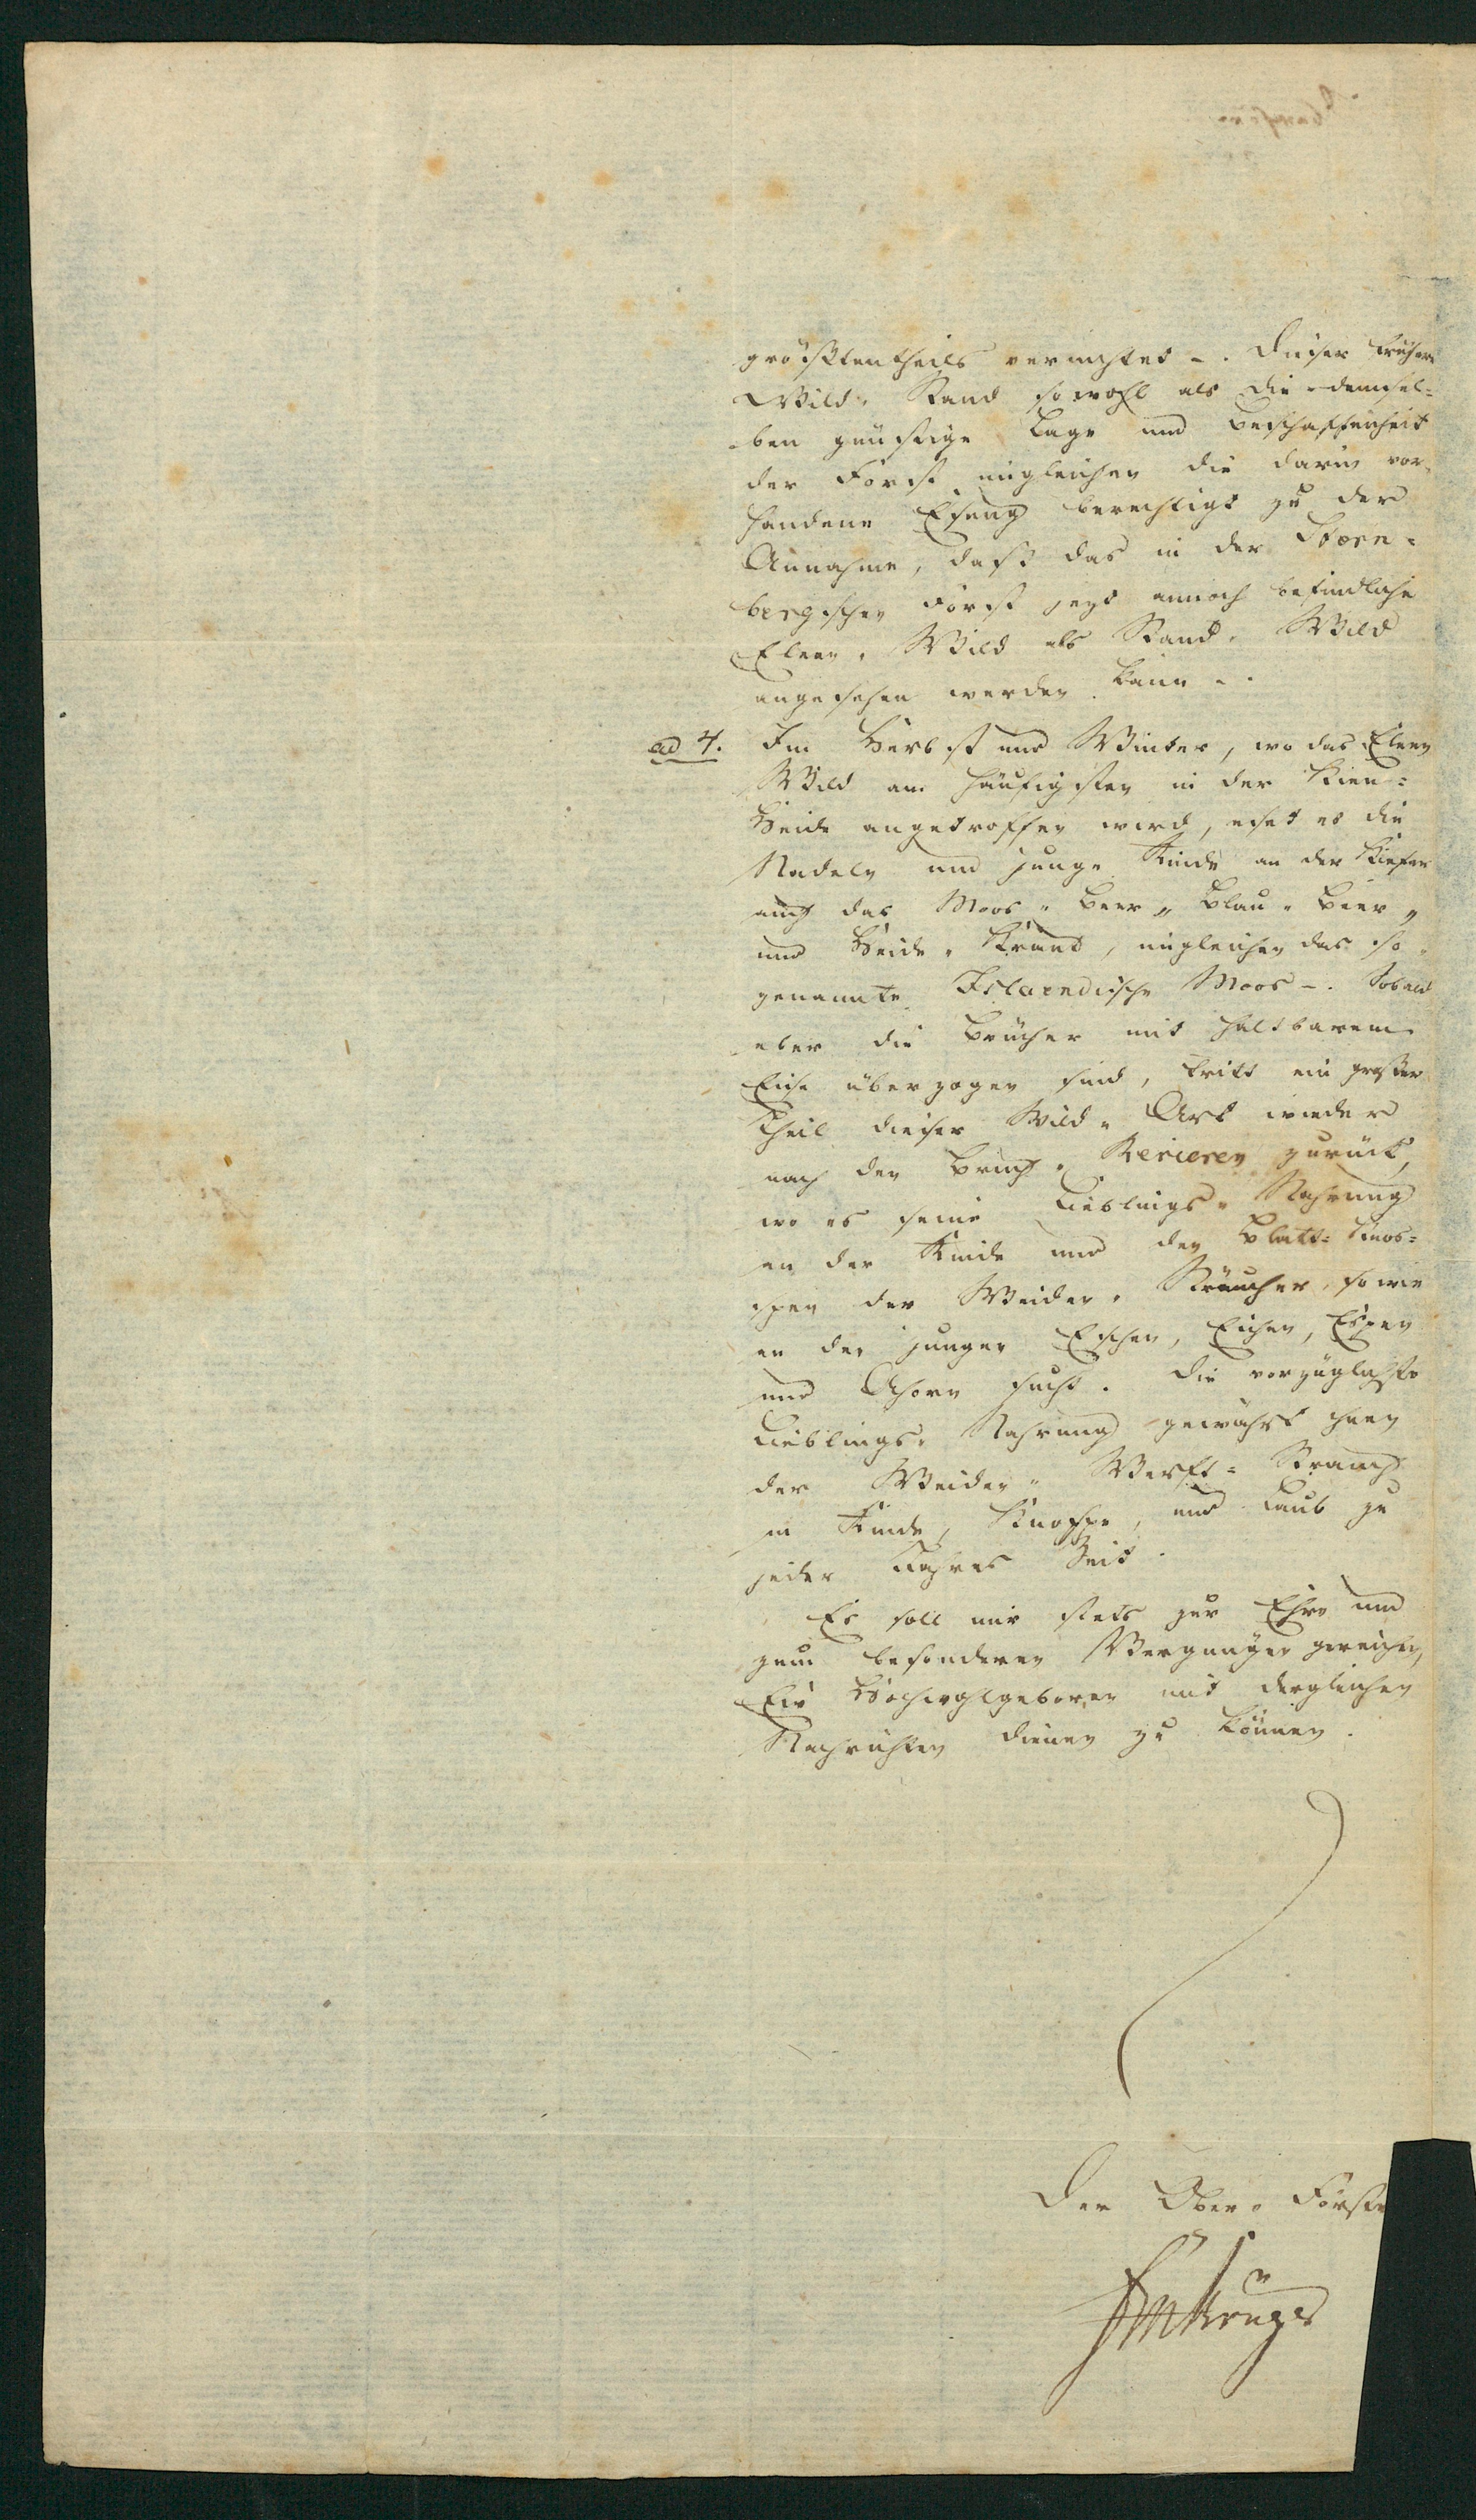 größtentheils vernichtet –. Dieser frühere
Wild-Stand sowohl als die demsel=
ben günstige Lage und Beschaffenheit
der Forst imgleichen die darin vor-
handene Esung berechtigt zu der
Annahme, daß das in der Stern=
bergschen Forst jezt annoch befindliche
Elenn-Wild als Stand-Wild
angesehen werden kann –.
ad 4. Im Herbst und Winter, wo das Elenn
Wild am häufigsten in der Kien=
Heide angetroffen wird, eset es die
Nadeln und junge Rinde an der Kiefer
auch das Moos-Beer-, Blau-Beer-,
und Heide-Kraut, imgleichen das so-
genannte Islaendische Moos –. Sobald
aber die Brücher mit haltbarem
Eise überzogen sind, tritt ein großer
Theil dieser Wild-Art wieder
nach den Bruch-Revieren zurück,
wo es seine Lieblings-Nahrung
an der Rinde und den Blatt=Knos=
pen der Weiden-Sträucher, so wie
an den jungen Eschen, Eichen, Espen
und Ahorn sucht. Die vorzüglichste
Lieblings-Nahrung gewährt ihnen
der Weiden-Werft=Strauch
in Rinde, Knospe, und Laub zu
jeder Jahres Zeit.
Es soll mir stets zur Ehre und
zum besonderen Vergnügen gereichen,
Ew Hochwohlgeboren mit dergleichen
Nachrichten dienen zu können.
Der Ober-Förste
Krüger